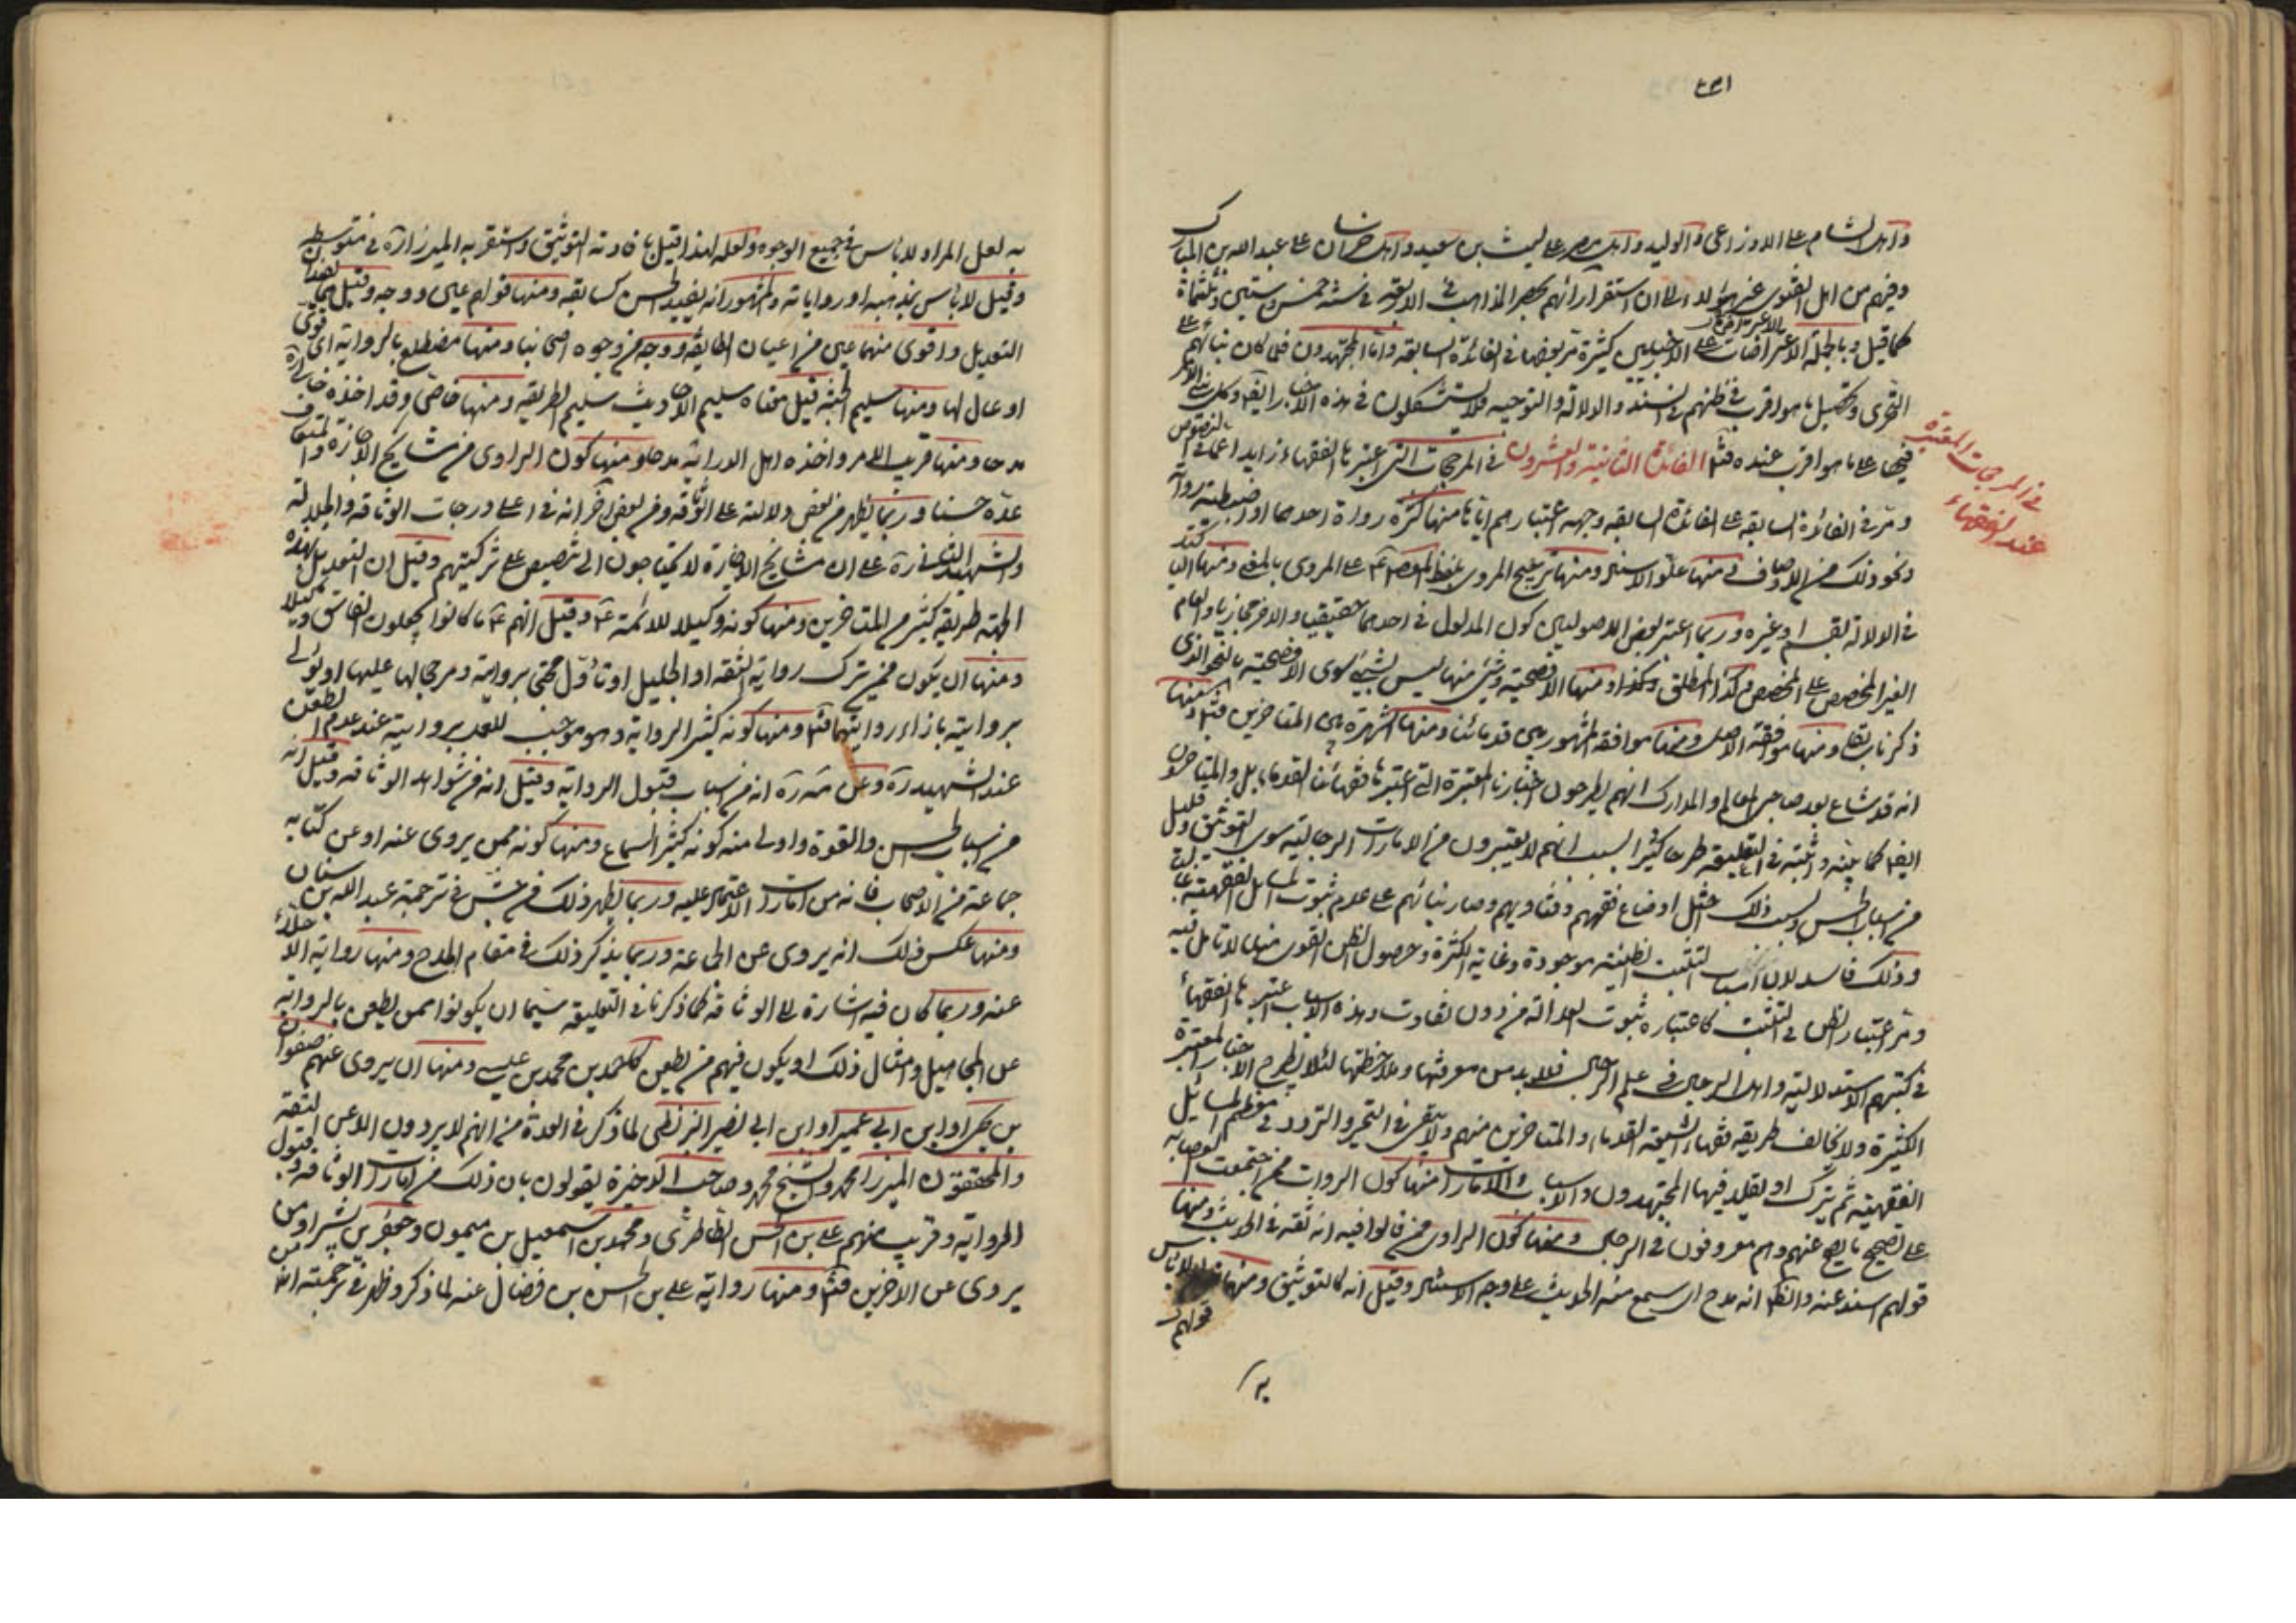 ٤٣١
واهل الشام على الاوزاعى والوليد واهل مصر على ليث بن سعيد واهل خراسان على عبدالله بن المبارك
وفيهم من اهل الفتوى غير هؤلاء الى ان استقر ارائهم بحصر المذاهب فى الاربعة فى سنة خمس وستين وثلثمائة
كما قيل وبالجملة الاعتراضات على الاخباريين كثيرة مر بعضها فى الفائدة السابقة واما المجتهدون فلما كان بنائهم على
التحرى وتحصيل ما هو اقرب فى ظنهم فى السند والدلالة والتوجيه فلا يستشكلون فى هذه الاخبار ايضا
فيها على ما هو اقرب عنده فتأمل الفائدة الثانية والعشرون فى المرجحات التى اعتبرها الفقهاء زايدا على ما فى النصوص
فى المرجحات المعتبرة
عند الفقهاء
ومر فى الفائدة السابقة على الفائدة السابقة وجه اعتبارهم اياها منها كثرة رواة احدهما او اضبطية رواته
ونحو ذلك من الاوصاف ومنها علو الاسناد ومنها ترجيح المروى بلفظ المعصوم ع على المروى بالمعنى ومنها
فى الدلالة بقسم او غيره وربما اعتبر بعض الاصوليين كون المدلول فى احدهما حقيقيا والاخر مجازيا والعام
الغير المخصص على المخصص وكذا المطلق وهكذا ومنها الافصحية وشئ منها ليس بشئ سوى الافصحية بالنحو الذى
ذكرنا سابقا ومنها موافقة الاصل ومنها موافقة المشهور بين قدمائنا ومنها الشهرة بين المتاخرين فتأمل
انه قد شاع بعد صاحبى المعالم والمدارك انهم يطرحون اخبارنا المعتبرة التى اعتبرها فقهائنا القدماء بل والمتاخرون
ايضا كما بينته واثبته فى التعليقة طرحا كثيرا بسبب انهم لا يعتبرون من الامارات الرجالية سوى التوثيق وقليل
من اسباب الحسن وبسبب ذلك اختل اوضاع فقههم وفتاويهم وصار بنائهم على عدم ثبوت المسائل الفقهية غالبا
وذلك فاسد لان اسباب التثبت الظنية موجودة وغاية الكثرة وحصول الظن القوى منها لا تامل فيه
ومر اعتبار الظن فى التثبت كاعتباره ثبوت العدالة من دون تفاوت وهذه الاسباب اعتبرها الفقهاء
فى كتبهم الاستدلالية واهل الرجال فى علم الرجال فلا بد من معرفتها وملاحظتها لئلا يطرح الاخبار المعتبرة
الكثيرة ولا يخالف طريقة فقهاء الشيعة القدماء والمتاخرين منهم ولا يبقى فى التحير والتردد فى معظم المسائل
الفقهية ثم يترك او يقلد فيها المجتهدون والاسباب والامارات منها كون الروات ممن اجتمعت العصابة
على تصحيح ما يصح عنهم وهم معروفون فى الرجال ومنها كون الراوى ممن قالوا فيه انه ثقة فى الحديث ومنها
قولهم اسند عنه والظاهر انه مدح اى سمع منه الحديث على وجه الاستناد وقيل انه كالتوثيق ومنها قولهم لا باس
به
به لعل المراد لا باس فى جميع الوجوه ولعله لهذا قيل بافادته التوثيق واستقر به الميرزا ره فى متوسطه
وقيل لا باس بمذهبه او رواياته والمشهور انه يفيد الحسن كسابقه ومنها قولهم عين ووجه وقيل هما يفيدان
التعديل واقوى منهما عين من اعيان الطايفة ووجه من وجوه اصحابنا ومنها مضطلع بالرواية اى قوى
او عال لها ومنها سليم الجنبة قيل معناه سليم الاحاديث سليم الطريقة ومنها خاصى وقد اخذه خالى ره
مدحا ومنها قريب الامر واخذه اهل الدراية مدحا ومنها كون الراوى من مشايخ الاجازة والمتعارف
عده حسنا وربما يظهر من بعض دلالته على الوثاقة ومن بعض اخر انه فى اعلى درجات الوثاقة والجلالة
والشهيد الثانى ره على ان مشايخ الاجازة لا يحتاجون الى تنصيص على تزكيتهم وقيل ان التعديل بهذه
الجهة طريقة كثير من المتاخرين ومنها كونه وكيلا للائمة ع وقيل انهم ع ما كانوا يجعلون الفاسق وكيلا
ومنها ان يكون ممن يترك رواية الثقة او الجليل او تاول محتجا بروايته ومرجحا لها عليها او يؤتى
بروايته بازاء روايتهما فتأمل ومنها كونه كثير الرواية وهو موجب للعمل بروايته عند عدم الطعن
عند الشهيد ره وعن مه ره انه من اسباب قبول الرواية وقيل انه من شواهد الوثاقة وقيل انه
من اسباب الحسن والقوة واولى منه كونه كثير السماع ومنها كونه ممن يروى عنه او عن كتابه
جماعة من الاصحاب فانه من امارات الاعتماد عليه وربما يظهر ذلك من جش فى ترجمة عبد الله بن سنان
ومنها عكس ذلك انه يروى عن الجماعة وربما يذكر ذلك فى مقام المدح ومنها رواية الاجلاء
عنه وربما كان فيه اشارة الى الوثاقة كما ذكرنا فى التعليقة سيما ان يكونوا ممن يطعن بالرواية
عن المجاهيل وامثال ذلك او يكون فيهم من يطعن كاحمد بن محمد بن عيسى ومنها ان يروى عنهم صفوان
بن يحيى او ابن ابى عمير او ابن ابى نصر البزنطى لما ذكر فى العدة من انهم لا يروون الا عن الثقة
والمحققون الميرزا محمد والشيخ محمد وصاحب الذخيرة يقولون بان ذلك من امارات الوثاقة وقبول
الرواية وقريب منهم على بن الحسن الطاطرى ومحمد بن اسمعيل بن ميمون وجعفر بن بشير او من
يروى عن الاخرين فتأمل ومنها رواية على بن الحسن بن فضال عنه لما ذكر وظهر فى ترجمته